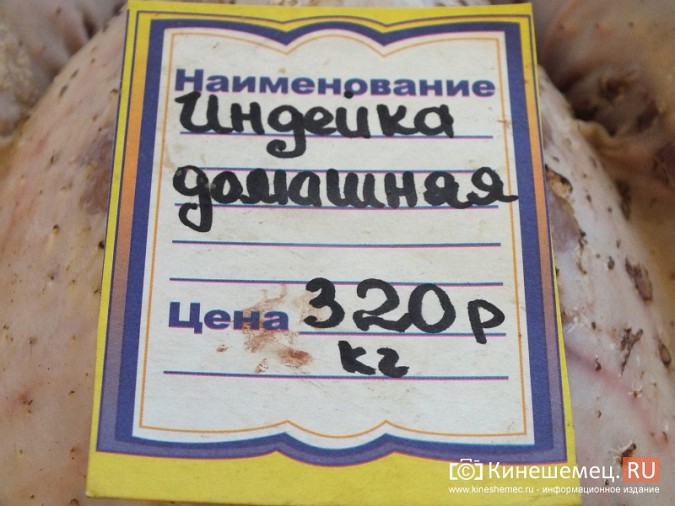 Наименование
Индейка
домашняя
Цена 320 р
кг
Кинешемец.RU
www.kineshemec.ru - информационное издание